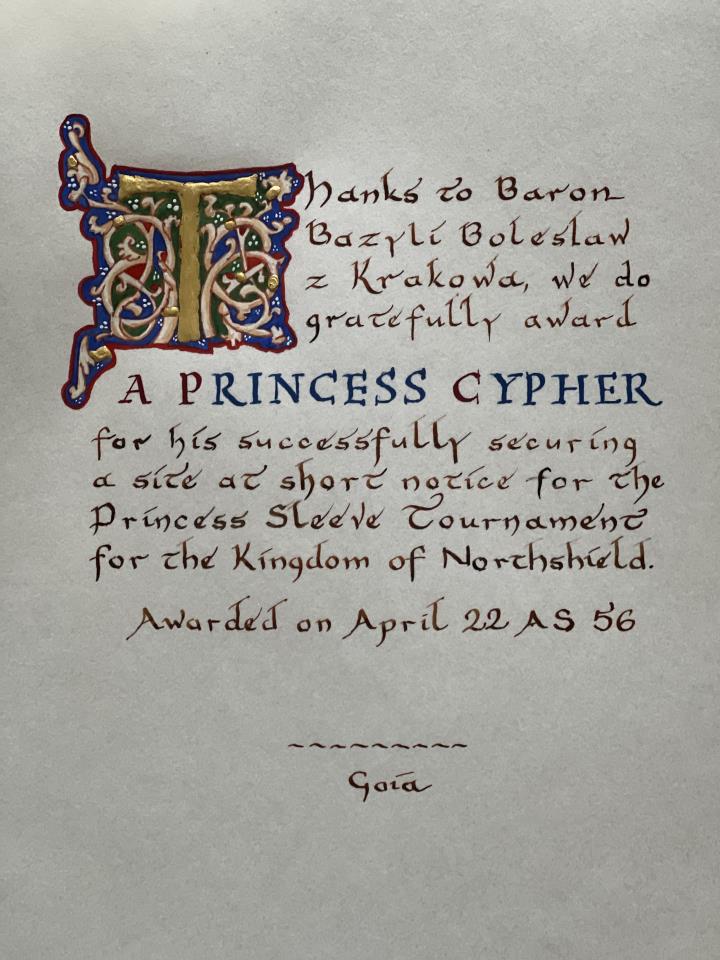 Thanks to Baron
Bazyli Boleslaw
z Krakowa, we do
gratefully award
A PRINCESS CYPHER
for his successfully securing
a site at short notice for the
Princess Sleeve Tournament
for the Kingdom of Northshield.
Awarded on April 22 AS 56
~~~~~~~~~
Goia